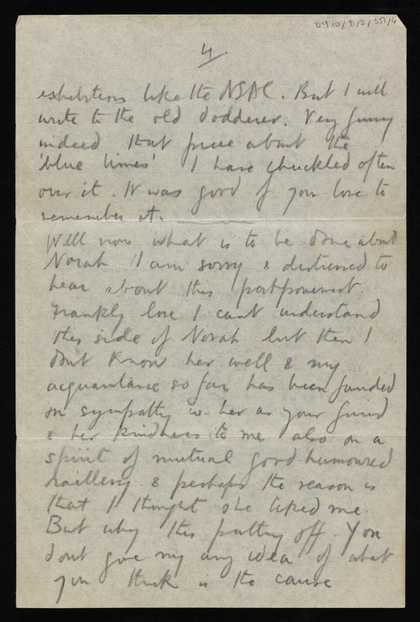 4.
exhibitions like the NSAC. But I will
write to the old dodderer. Very funny
indeed that piece about the
'blue limes' I have chuckled often
over it. It was good of you love to
remember it.
Well now what is to be done about
Norah I am sorry & distressed to
hear about this postponement.
Frankly love I can't understand
this side of Norah but then I
don't know her well & my
acquaintance so far has been founded
on sympathy to her as your friend
& her kindness to me also on a
spirit of mutual good humoured
raillery & perhaps the reason is
that I thought she liked me.
But why this putting off. You
don't give my any idea of what
you think is the cause